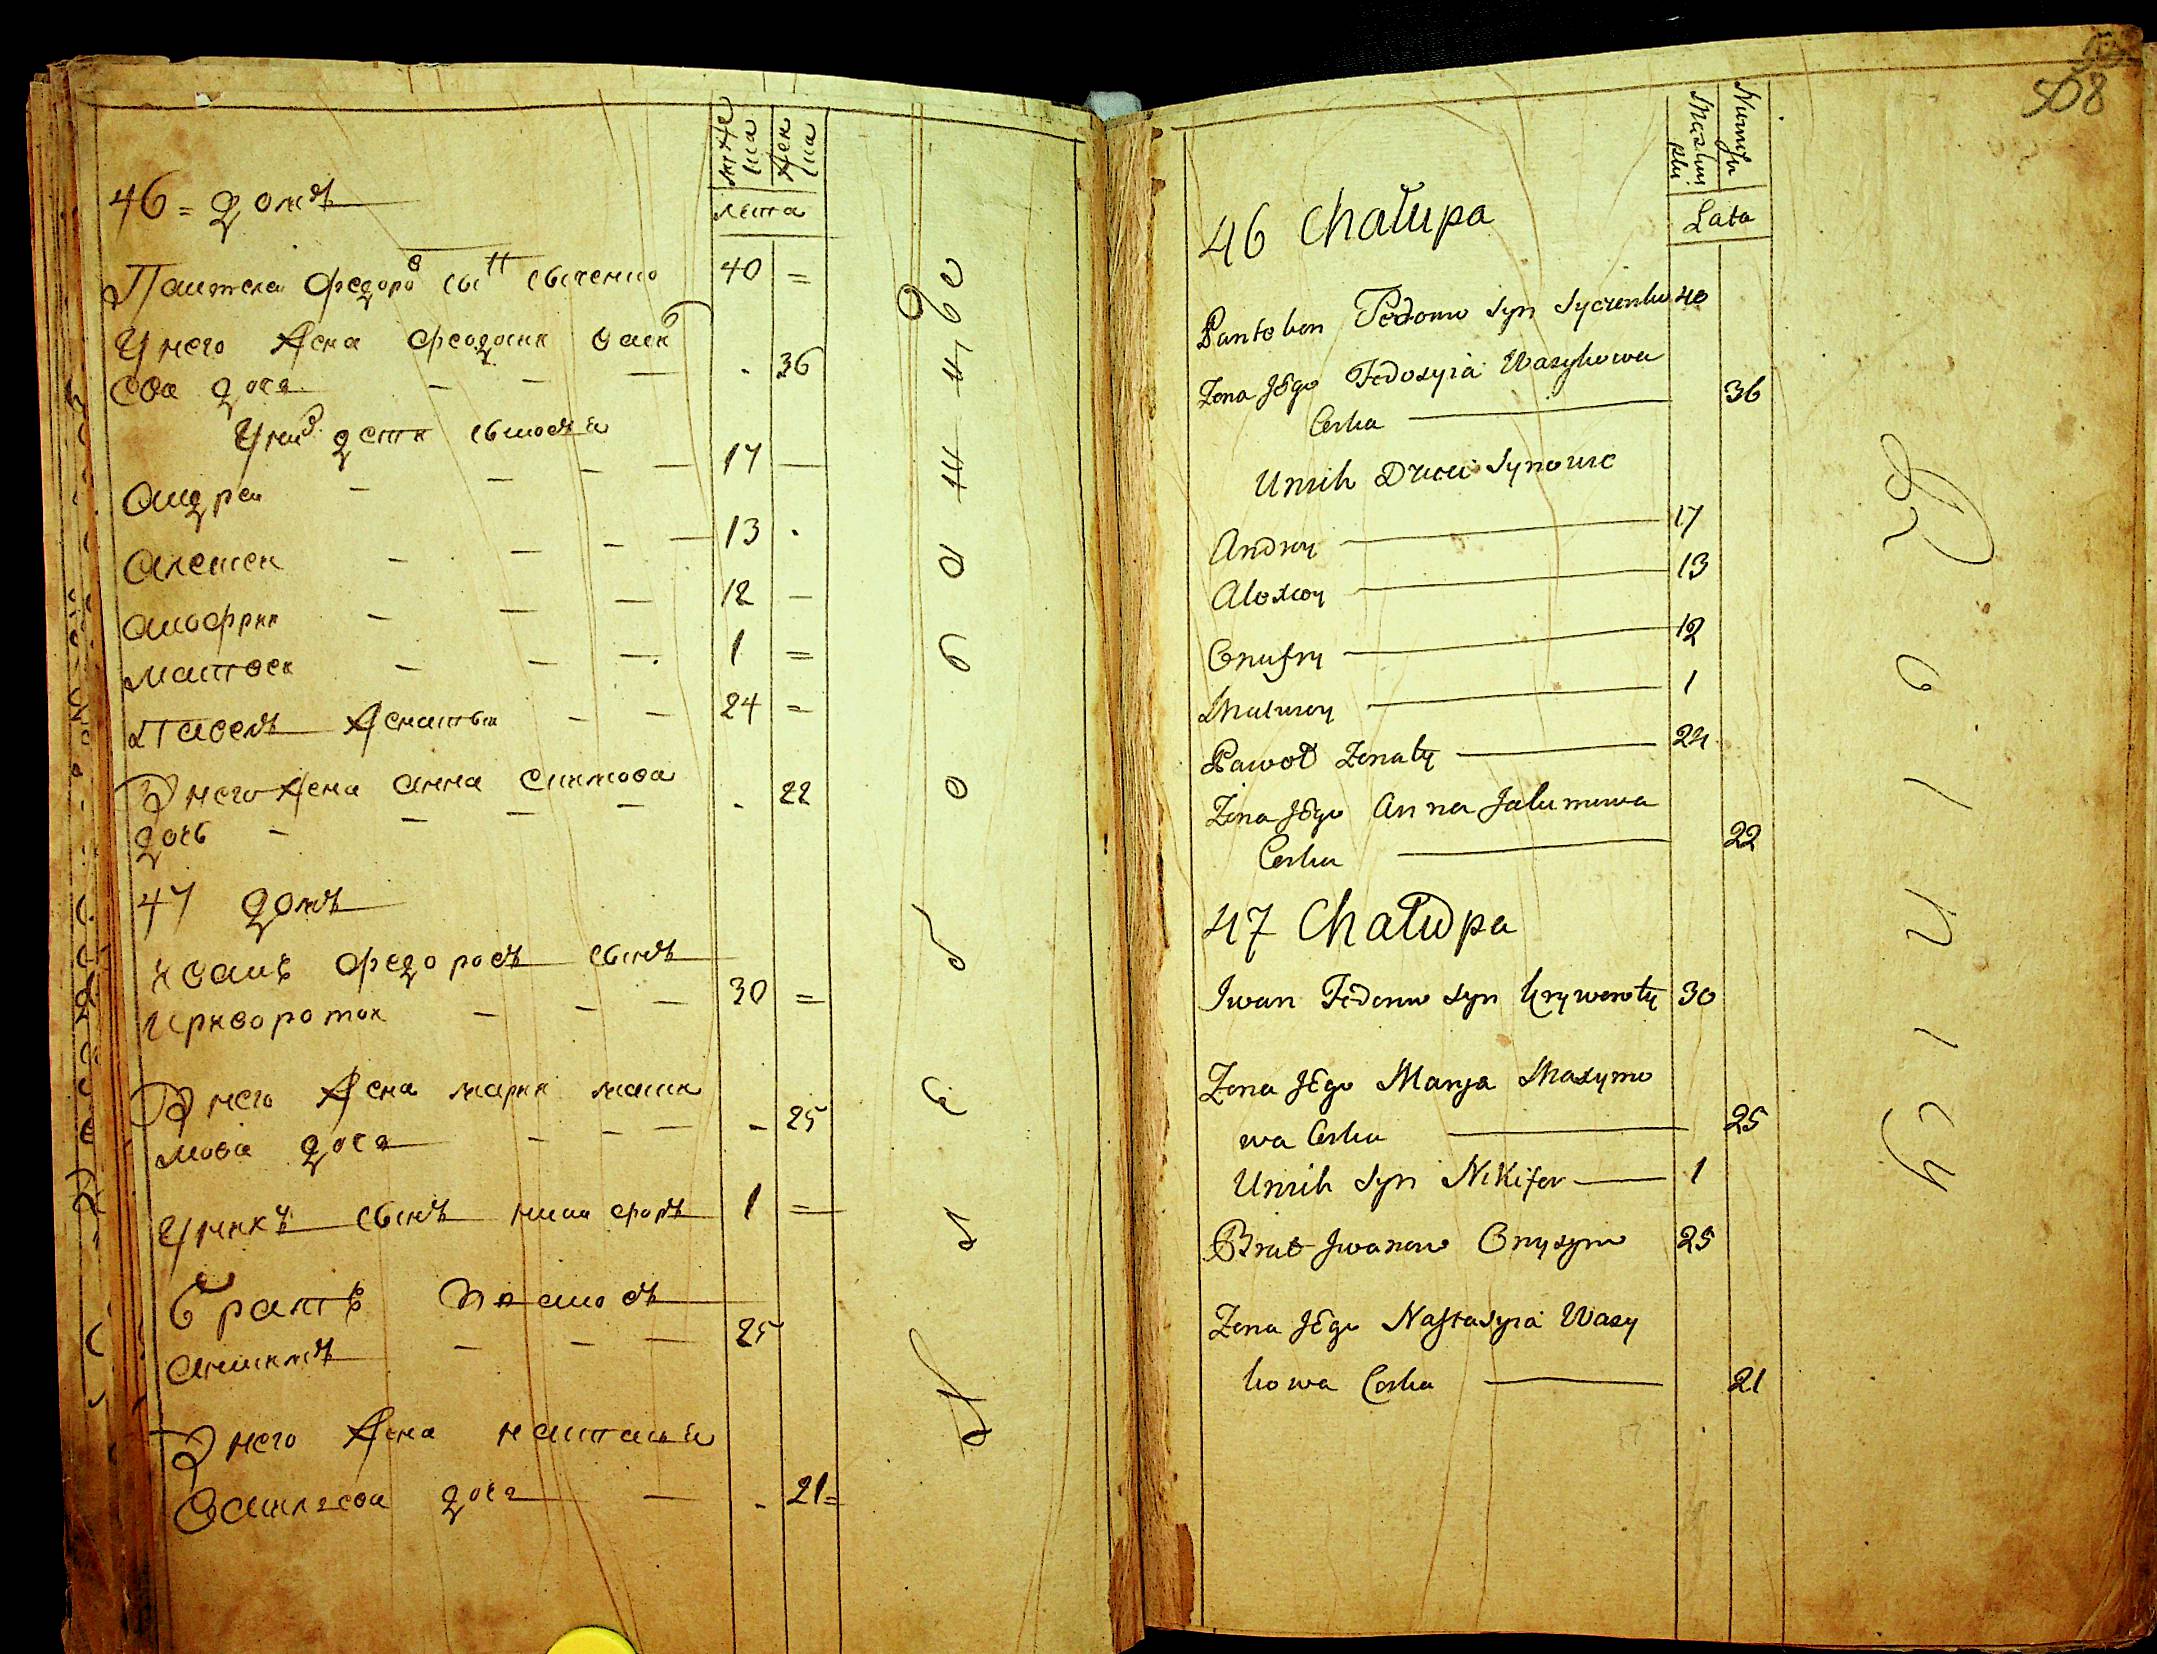 мꙋже
ска
жен
ска
лета
46 = домъ
Пантелей Федоро в сын Сыченко 40 =
У него жена Феодосия Васи
ова дочь — — — . 36
У них дети сыновья
Андрей — — — — 17 —
Алексей — — — — 13 .
Анофрий — — — 12 —
Матвей — — — 1 =
Павелъ женатый — — 24 =
У него жена Анна
дочь — — — — . 22
47 домъ
Иванъ Федоровъ сынъ
Криворотый — — — 30 =
У него жена Мария Макси
мова дочь — — — — 25
У нихъ сынъ Никифоръ 1 =
Братъ Ивановъ
Анисимъ — — — 25
У него жена Настасья
Василева дочь — . 21 =
508
Męzkiej
płci
Niewiesciej
Lata
46 Chałupa
Pantelon Fedorow Syn Syczenko 40
Zona Jego Fedosyia Wasylowa
Corka — 36
U nich Dzieci Synowie
Andrey — 17
Alexiey — 13
Onufry — 12
Matwiey — 1
Paweł Zonaty — 24
Zona Jego Anna
Corka — 22
47 Chałupa
Iwan Fedorow Syn Krzyworoty 30
Zona Jego Marya Maxymo
wa Corka — 25
U nich Syn Nikifor — 1
Brat Iwanow Onyzym 25
Zona Jego Nastasyia Wasy
lowa Corka — 21